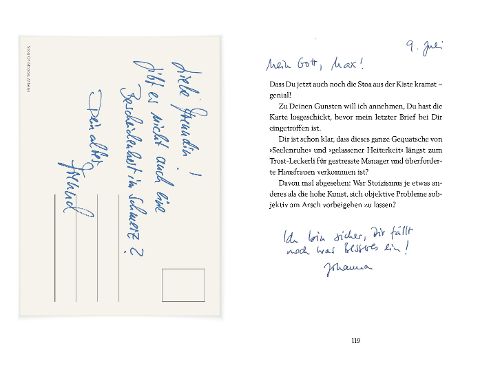 Liebe Freundin!
Gibt es nicht auch eine
Bescheidenheit im Schmerz?
Dein alter
Freund
9. Juli
Mein Gott, Max!
Dass Du jetzt auch noch die Stoa aus der Kiste kramst –
genial!
Zu Deinen Gunsten will ich annehmen, Du hast die
Karte losgeschickt, bevor mein letzter Brief bei Dir
eingetroffen ist.
Dir ist schon klar, dass dieses ganze Gequatsche von
›Seelenruhe‹ und ›gelassener Heiterkeit‹ längst zum
Trost-Leckerli für gestresste Manager und überforder-
te Hausfrauen verkommen ist?
Davon mal abgesehen: War Stoizismus je etwas an-
deres als die hohe Kunst, sich objektive Probleme sub-
jektiv am Arsch vorbeigehen zu lassen?
Ich bin sicher, Dir fällt
noch was Besseres ein!
Johanna
119